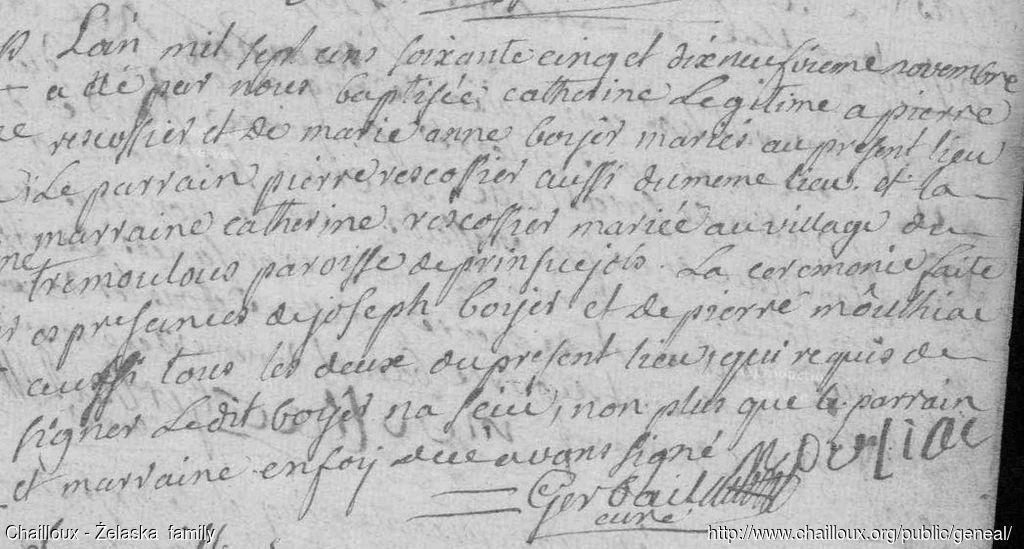 Lan mil sept cens soixante cinq et dixneufvieme novembre
a été par nous baptisée catherine Legitime a pierre
rescossier et de marie anne boyer mariés au present lieu
Le parrain pierre rescossier aussi du meme lieu et la
marraine catherine rescossier mariée au village de
tremoulous paroisse de prinsuejols. La ceremonie faite
es presances de joseph boyer et de pierre môulhiac
aussi tous les deux du present lieu, qui requis de
signer Ledit boyer na sceu, non plus que le parrain
et marraine en foy de ce avons signé
Gerbail
curé
Chailloux - Żelaska family
http://www.chailloux.org/public/geneal/